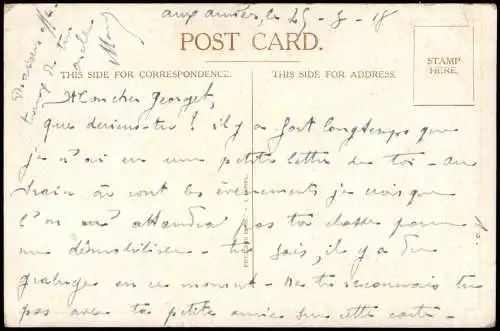 le 25-8-18
POST CARD.
THIS SIDE FOR CORRESPONDENCE.
THIS SIDE FOR ADDRESS.
STAMP
HERE.
Mon cher Georget,
que deviens-tu ? il y a fort longtemps que
je n'ai eu une petite lettre de toi - au
train où vont les évènements je crois que
l'on n' attendra pas ta classe pour
me démobiliser - tu sais, il y a du
grabuge en ce moment - ne te reconnais tu
pas avec ta petite amie sur cette carte -